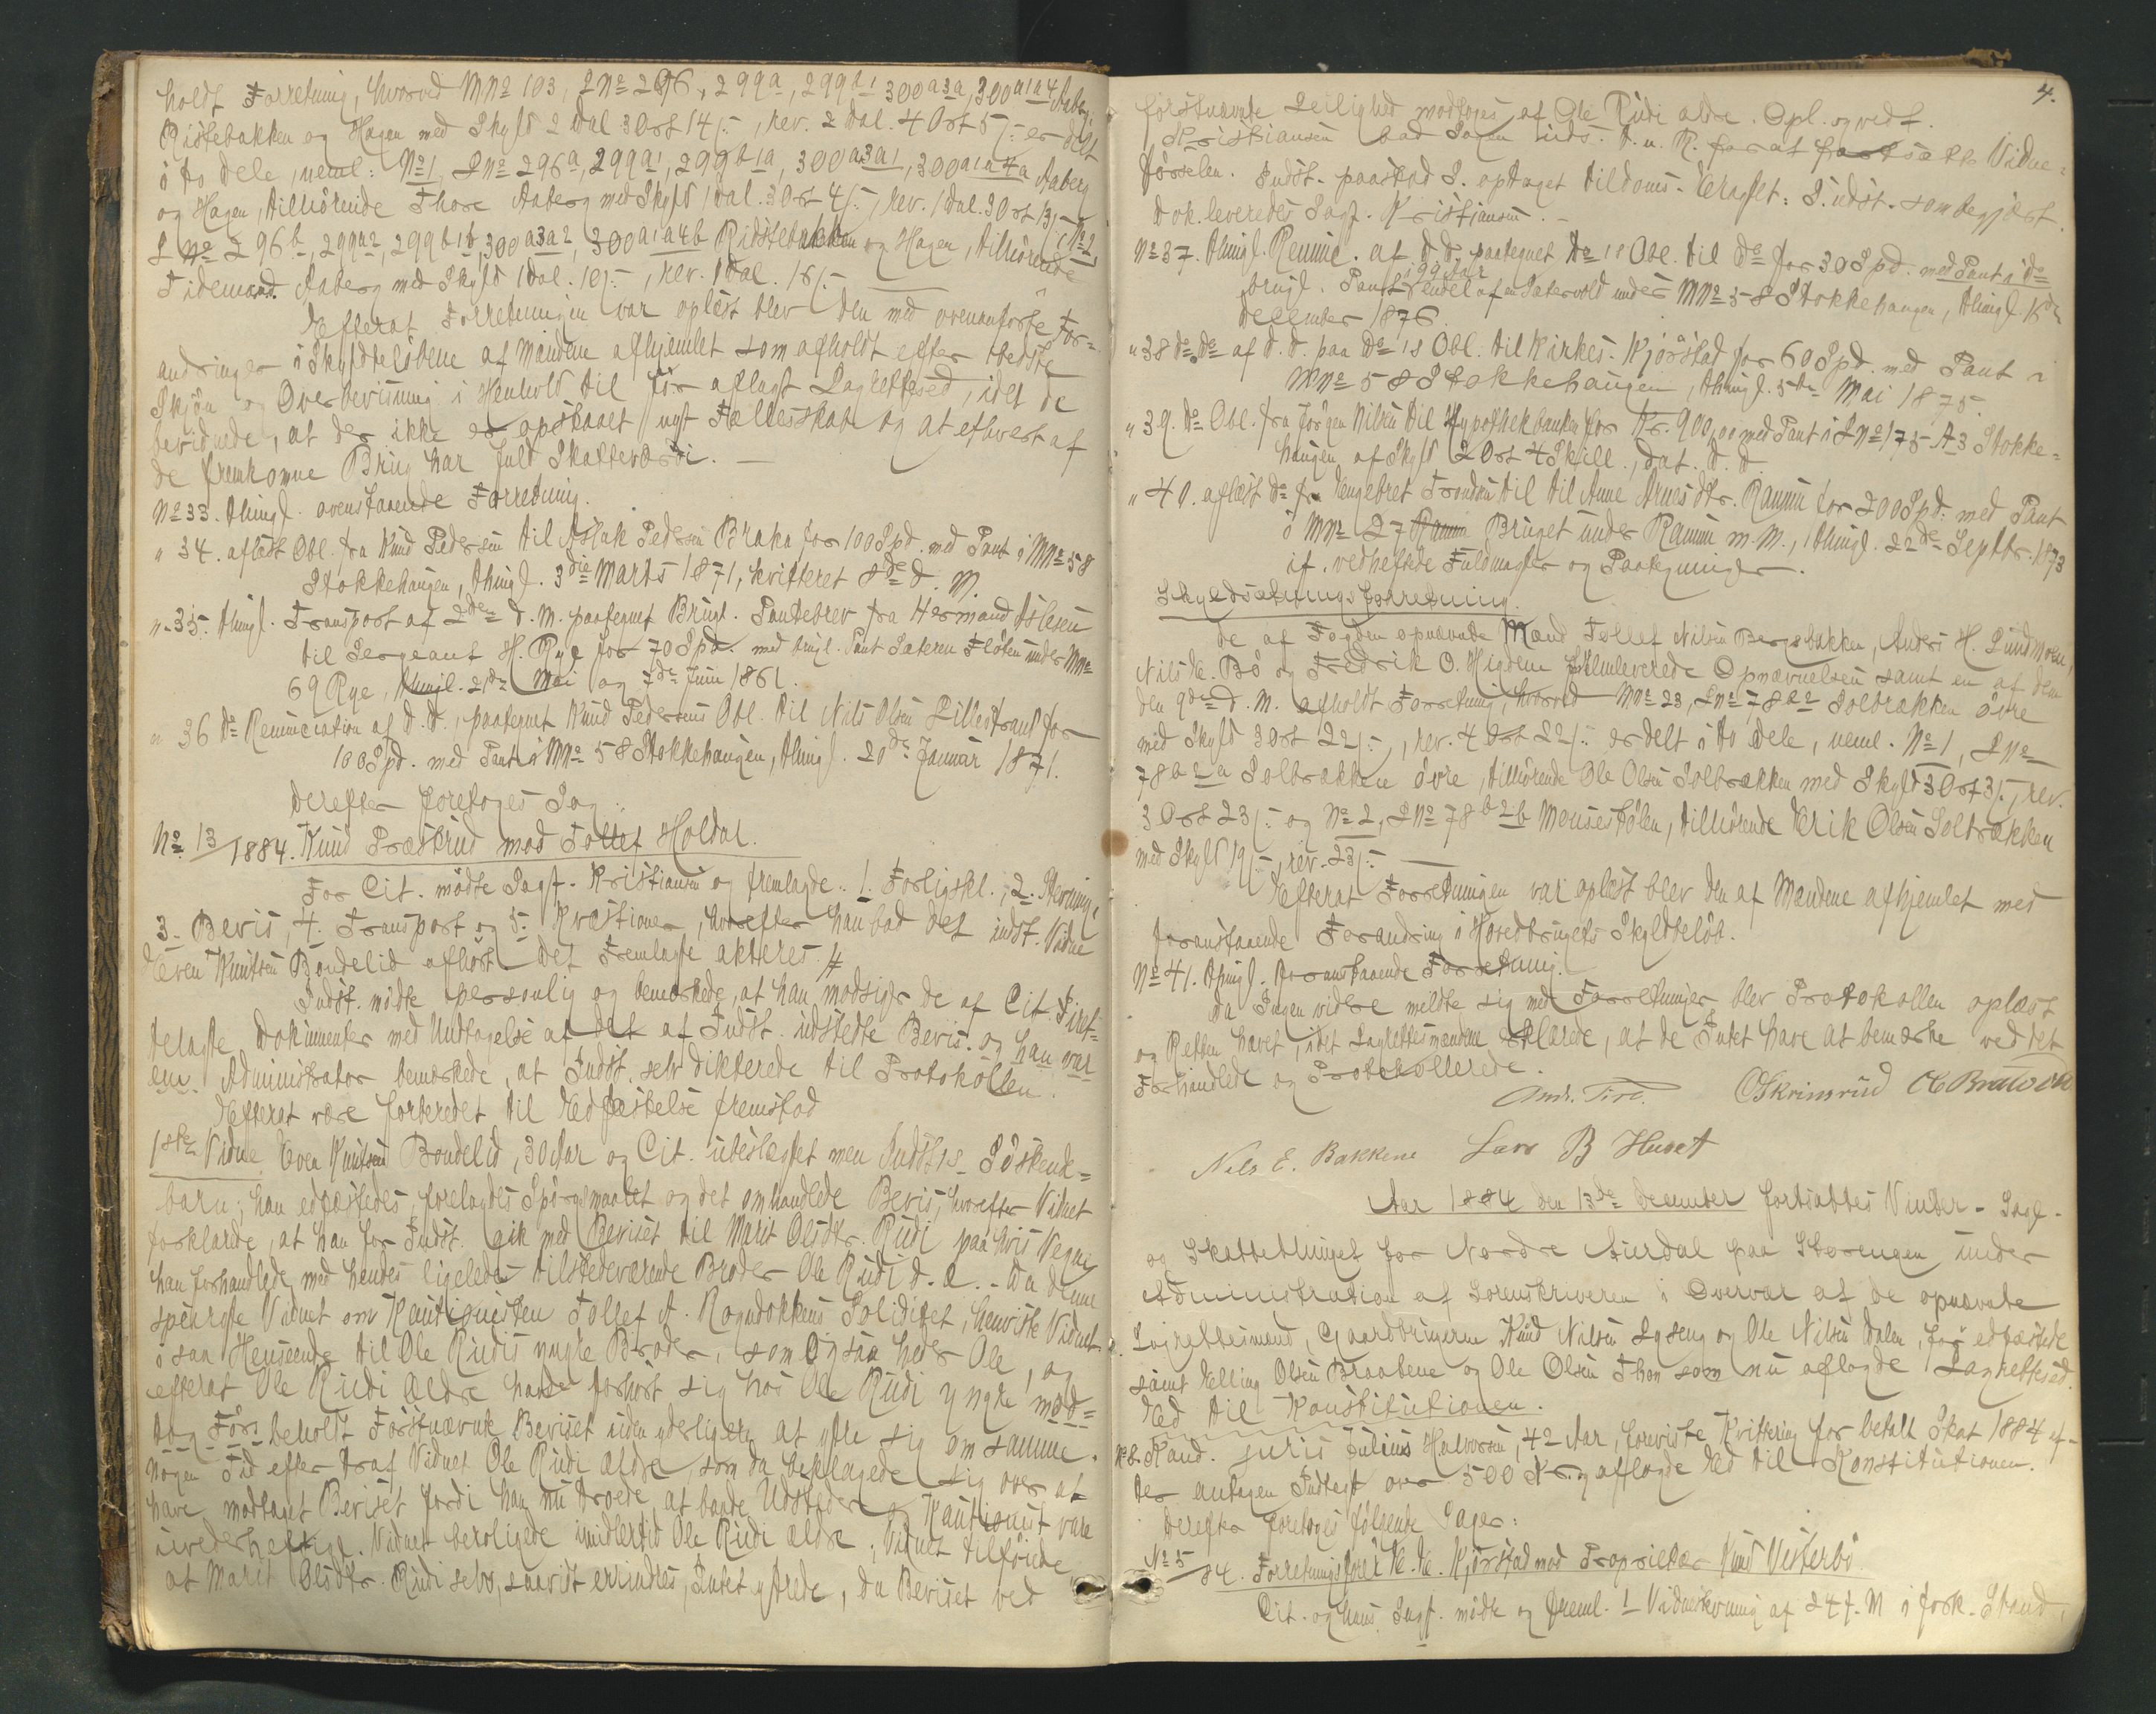 holdt Forretning, hvorved MNo 103, LNo 296, 299a, 299b1 300a3a, 300a1a4 Aaberg,
Ristebakken og Hagen med Skyld 2 Dal. 3 Ort 14 s., rev. 2 Dal. 4 Ort 5 s. er delt
i to Dele, neml: No 1, LNo 296a, 299a1, 299b1a, 300a3a1, 300a1a4a Aaberg
og Hagen, tilhörende Thore Aaberg med Skyld 1 Dal. 3 Ort 4 s., rev. 1 Dal. 3 Ort 13 s. No 2,
LNo 296b, 299a2, 299b1b, 300a3a2, 300a1a4b Ridstebakken og Hagen, tilhörende
Tidemand Aaberg med Skyld 1 Dal. 10 s., rev. 1 Dal. 16 s.
Efterat Forretningen var oplæst blev den med ovenanförte For=
andringer i Skyldbelöbene af Mændene afhjemlet som afholdt efter bedste
Skjön og Overbevisning i Henhold til för aflagt Lagrettesed, idet de
bevidnede, at der ikke er opstaaet nyt Fællesskab og at ethvert af
de fremkomne Brug har fuld Skatteværdi.
No 33. thingl. ovenstaaende Forretning.
" 34. aflæst Obl. fra Knud Pedersen til Aslak Pedersen Braka for 100 Spd. med Pant i MNo 58
Stokkehaugen, thingl. 3die Marts 1871, kvitteret 8de d. M.
" 35. thingl. Transport af 2den d. M. paategnet Brugl. Pantebrev fra Hermand Islesen
til Sergeant H. Rye for 70 Spd. med brugl. Pant Sæteren Flöten under MNo
69 Rye, thingl. 21de Mai og 7de Juni 1861.
" 36 do Renunciation af d. D., paategnet Knud Pedersens Obl. til Nils Olsen Lillestrand for
100 Spd. med Pant i MNo 58 Stokkehaugen, thingl. 20de Januar 1871.
Derefter foretoges Sag:
No 13/1884. Knud Præstrud mod Tollef Holdal.
For Cit. mödte Sagf. Kristiansen og fremlagde: 1. Forligskl., 2. Stevning,
3. Bevis, 4. Transport og 5. Kvæstioner, hvorefter han bad det indst. Vidne
Even Knutsen Bondelid afhört. Det Fremlagte akteres.
Indst. mödte personlig og bemærkede, at han modsiger de af Cit. Fret=
telagte Dokumenter med Undtagelse af det af Indst. udstedte Bevis. og han var
en. Administrator bemærkede, at Indst. selv dikterede til Protokollen.
Efterat være forberedet til Edfæstelse fremstod
1ste Vidne Even Knutsen Bondelid, 30 Aar og Cit. ubeslægtet men Indst's Söskende=
barn; han edfæstedes, forelagdes Spörgsmaalet og det omhandlede Bevis, hvorefter Vidnet
forklarede, at han for Indst. gik med Beviset til Marit Olsdtr. Rudi paa hvis Vegne
han forhandlede med hendes ligeledes tilstedeværende Broder Ole Rudi d. æ. Da denne
spurgte Vidnet om Kautionisten Tollef A. Rogndokkens Soliditet, henviste Vidnet
i saa Henseende til Ole Rudis yngre Broder, som Ogsaa heder Ole, og
efterat Ole Rudi Ældre havde forhört sig hos Ole Rudi yngre mod=
tog För= beholdt Förstnævnte Beviset uden yderligere at yttre sig om samme.
Nogen Tid efter traf Vidnet Ole Rudi ældre, som da beklagede sig over at
have modtaget Beviset fordi han nu troede at baade Udsteder og Kautionist vare
uvederheftige. Vidnet beroligede imidlertid Ole Rudi ældre; Vidnet tilföiede
at Marit Olsdtr. Rudi selv, saavidt erindres, Intet yttrede, da Beviset ved
4.
förstnævnte Leilighed modtoges af Ole Rudi ældre. Opl. og vedt.
Kristiansen bad Sagen uds. t. n. R. for at fortsætte Vidne=
förselen. Indst. paastod S. optaget til Doms. Eragtet: S. udst. som begjært.
Dok. leveredes Sagf. Kristiansen.
No 37. thingl. Renunc. af d. D. paategnet do's Obl. til do for 30 Spd. med Pant i do
brugl. Pant i 99 Aar endel af en Sætervold under MNo 58 Stokkehaugen, thingl.
December 1876.
" 38 do. do af d. D. paa do's Obl. til Kirkes. Kjörstad for 60 Spd. med Pant i
MNo 58 Stokkehaugen, thingl. 5te Mai 1875.
" 39. do Obl. fra Jörgen Nilsen til Hypothekbanken for Kr. 900,00 med Pant i LNo 175 A3 Stokke=
haugen af Skyld 2 Ort 4 Skill., dat. d. D.
" 40. aflæst do fra Engebret Trondsen til til Anne Arnesdtr. Ranum for 200 Spd. med Pant
i MNo 27 Ranum Bruget under Ranum m. M., thingl. 22de Septbr. 1873
if. vedheftede Fuldmagter og Paategninger.
Skyldsætningsforretning.
De af Fogden opnævnte Mænd Tollef Nilsen Bergsbakken, Anders H. Lundmoen,
Nils E. Bö og Fredrik O. Higdem fremleverede Opnævnelsen samt en af dem
den 9de d. M. afholdt Forretning, hvorved MNo 23, LNo 78b2 Solbrækken övre
med Skyld 3 Ort 22 s., rev. 4 Ort 22 s. er delt i to Dele, neml. No 1, LNo
78b2a Solbrækken övre, tilhörende Ole Olsen Solbrækken med Skyld 3 Ort 3 s., rev.
3 Ort 23 s. og No 2, LNo 78b2b Mousestölen, tilhörende Erik Olsen Solbrækken
med Skyld 19 s., rev. 23 s.
Efterat Forretningen var oplæst blev den af Mændene afhjemlet med
foranstaaende Forandring i Hovedbrugets Skyldbelöb.
No 41. thingl. foranstaaende Forretning.
Da Ingen videre meldte sig med Forretninger blev Protokollen oplæst
og Retten hævet, idet Lagrettesmændene erklærede, at de Intet have at bemærke ved det
Forhandlede og Protokollerede.
O Skrinsrud
Nils E. Bakkene Lars B Huset
Aar 1884 den 13de December fortsattes Vinter- Sage-
og Skattethinget for Nordre Aurdal paa Storengen under
Administration af Sorenskriveren i Overvær af de opnævnte
Lagrettesmænd, Gaardbrugerne Knud Nilsen Lyseng og Ole Nilsen Dalen, för edfæstede
samt Elling Olsen Braatene og Ole Olsen Thon som nu aflagde Lagrettesed.
Ed til Konstitutionen.
Kand. juris Julius Halvorsen, 42 Aar, foreviste Kvittering for betalt Skat 1884 ef-
ter antagen Indtægt over 500 Kr. og aflagde Ed til Konstitutionen.
Derefter foretoges fölgende Sager:
No 5/84. Forretningsförer E. E. Kjörstad mod Proprietær Knud Vesterbö.
Cit. og hans Sagf. mödte og freml. 1 Vidnestevning af 24 f. M i fork. Stand,